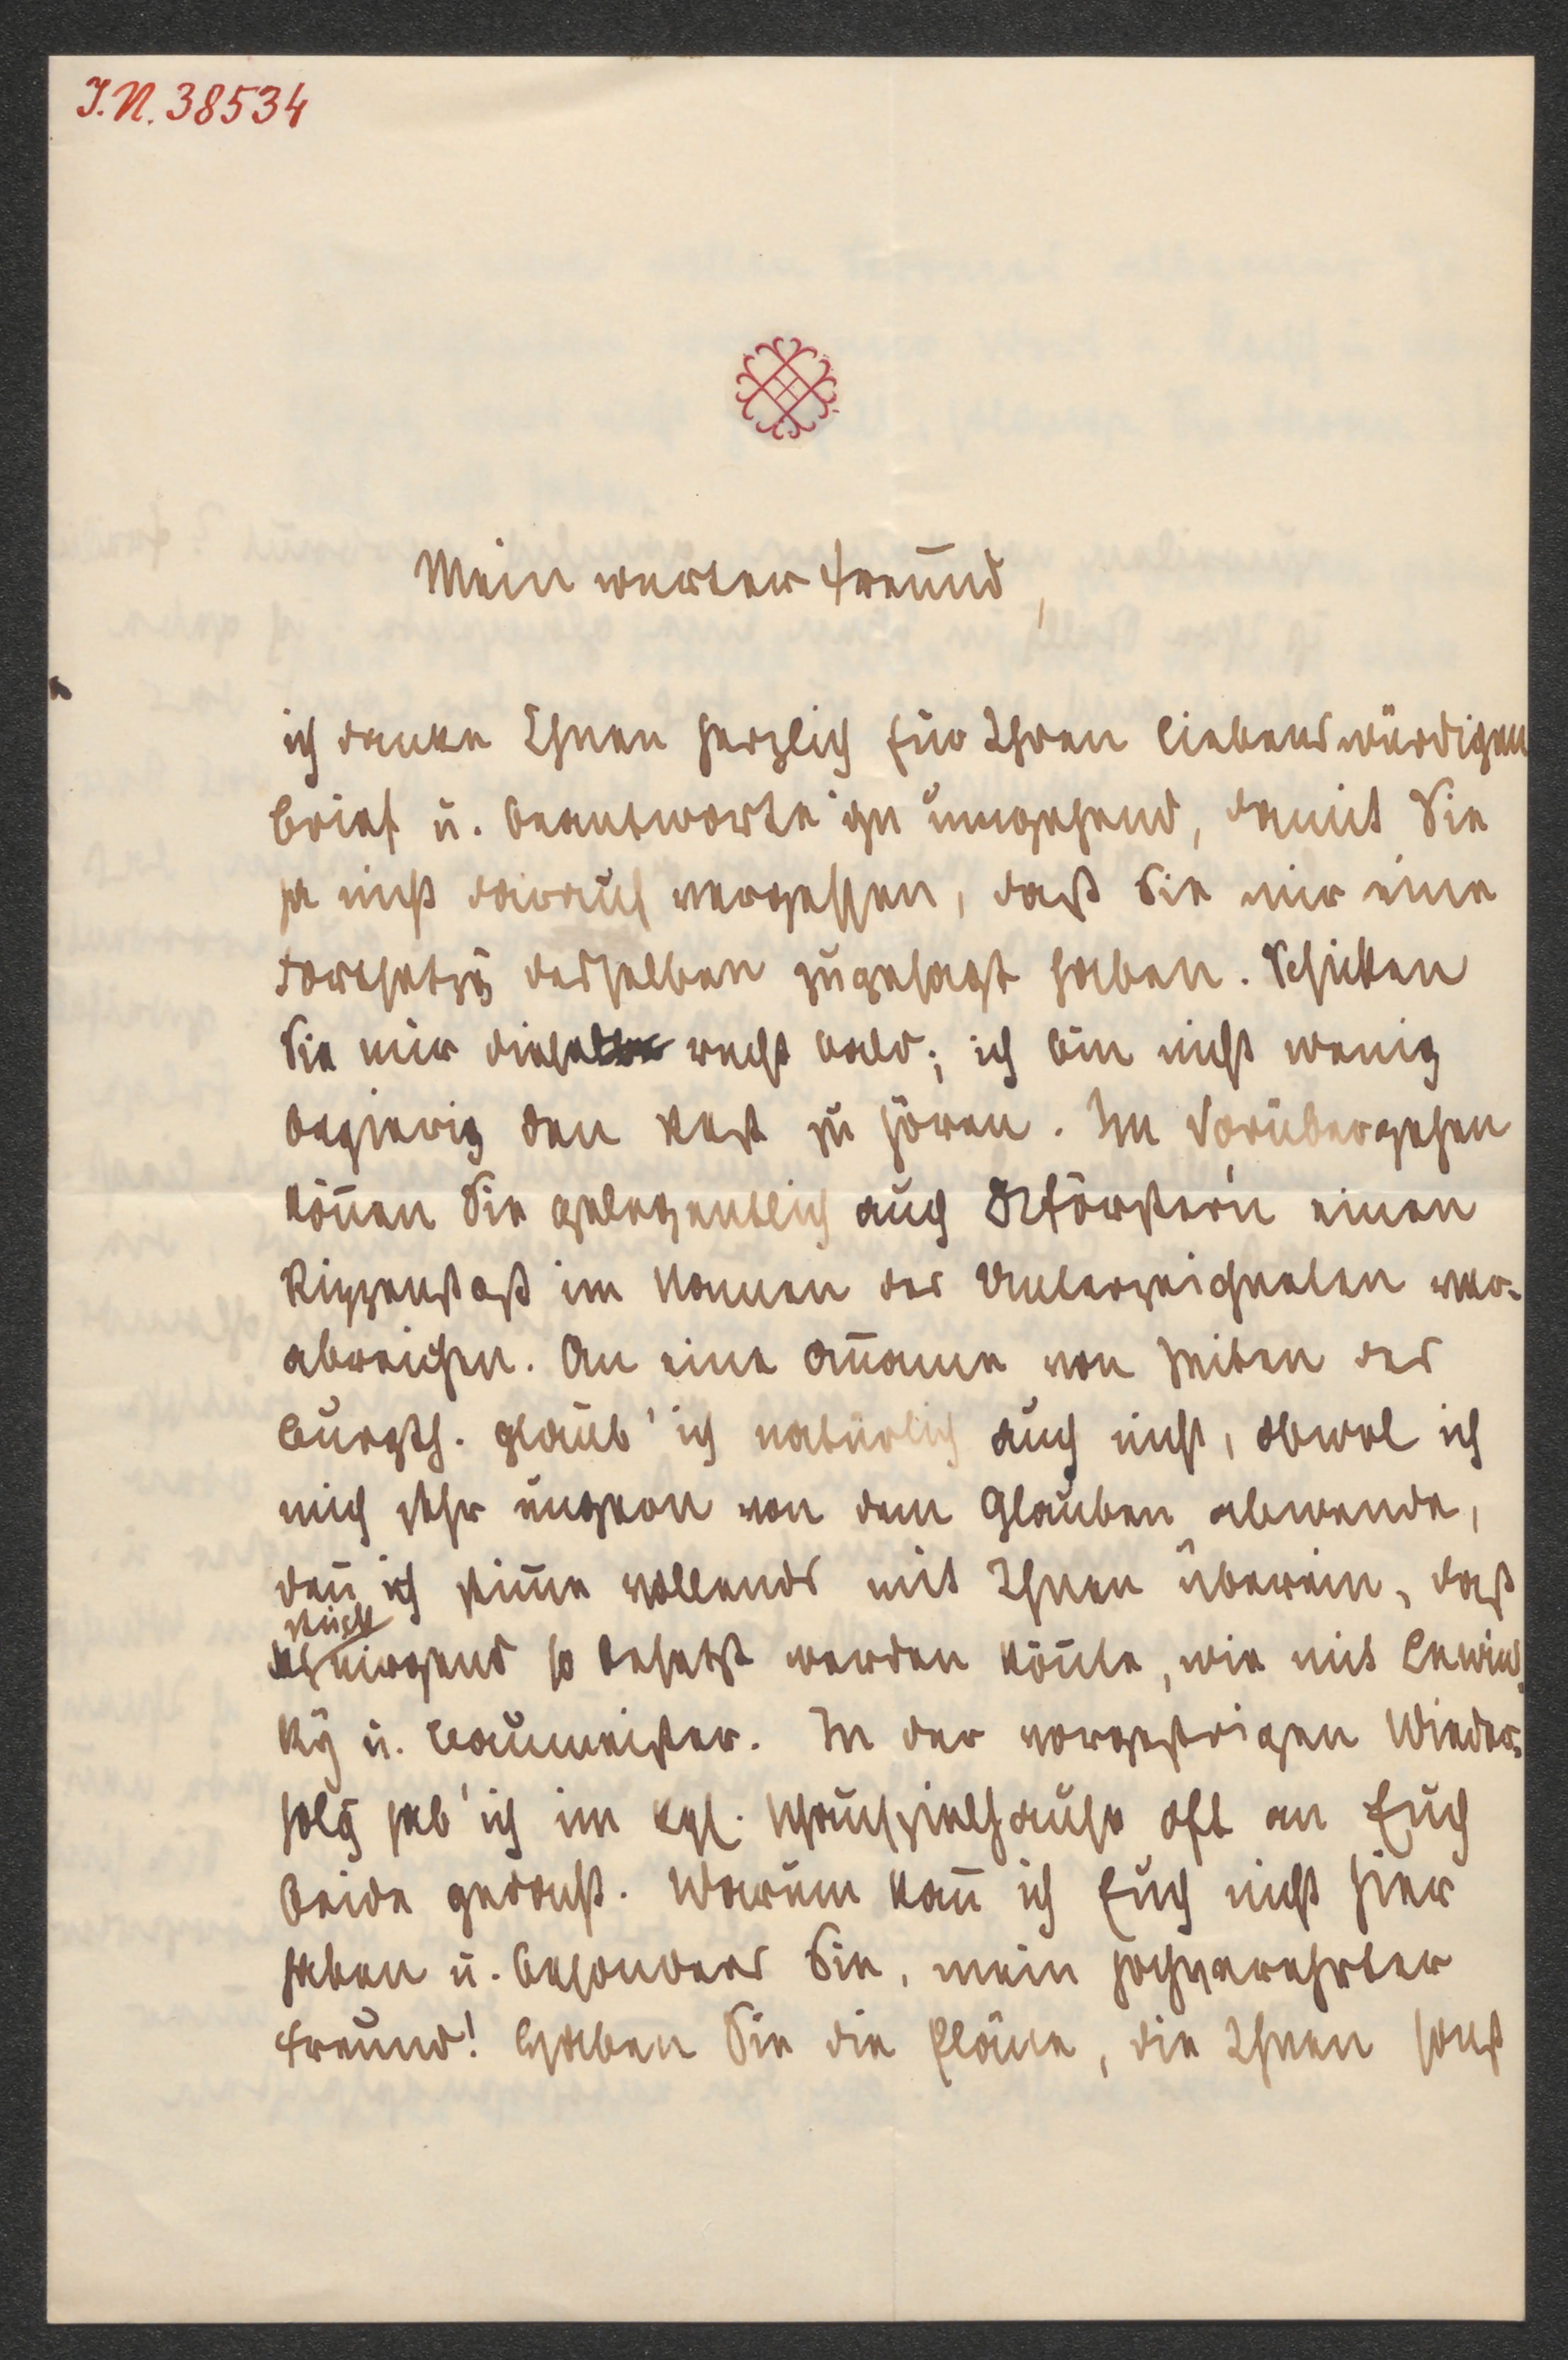 I.N. 38534
Mein werter Freund,
ich danke Ihnen herzlich für Ihren liebenswürdigen
Brief u. beantworte ihn umgehend, damit Sie
ja nicht darauf vergessen, daß Sie mir eine
Fortsetzg desselben zugesagt haben. Schicken
Sie mir diese recht bald; ich bin nicht wenig
begierig den Rest zu hören. Im Vorübergehen
können Sie gelegentlich auch Förstern einen
Rippenstoß im Namen des Unterzeichneten ver-
abreichen. An eine Anname von Seiten des
Burgth. glaub' ich natürlich auch nicht, obwol ich
mich sehr ungern von dem Glauben abwende,
den̄ ich stim̄e vollends mit Ihnen überein, daß
Stück
nirgend so besetzt werden kön̄te, wie mit Lewins-
ky u. Baumeister. In der vorgestrigen Wieder-
holg hab' ich im kgl. Schauspielhause oft an Euch
beide gedacht. Warum kan̄ ich Euch nicht hier
haben u. besonders Sie, mein hochverehrter
Freund! Haben Sie die Pläne, die Ihnen sonst